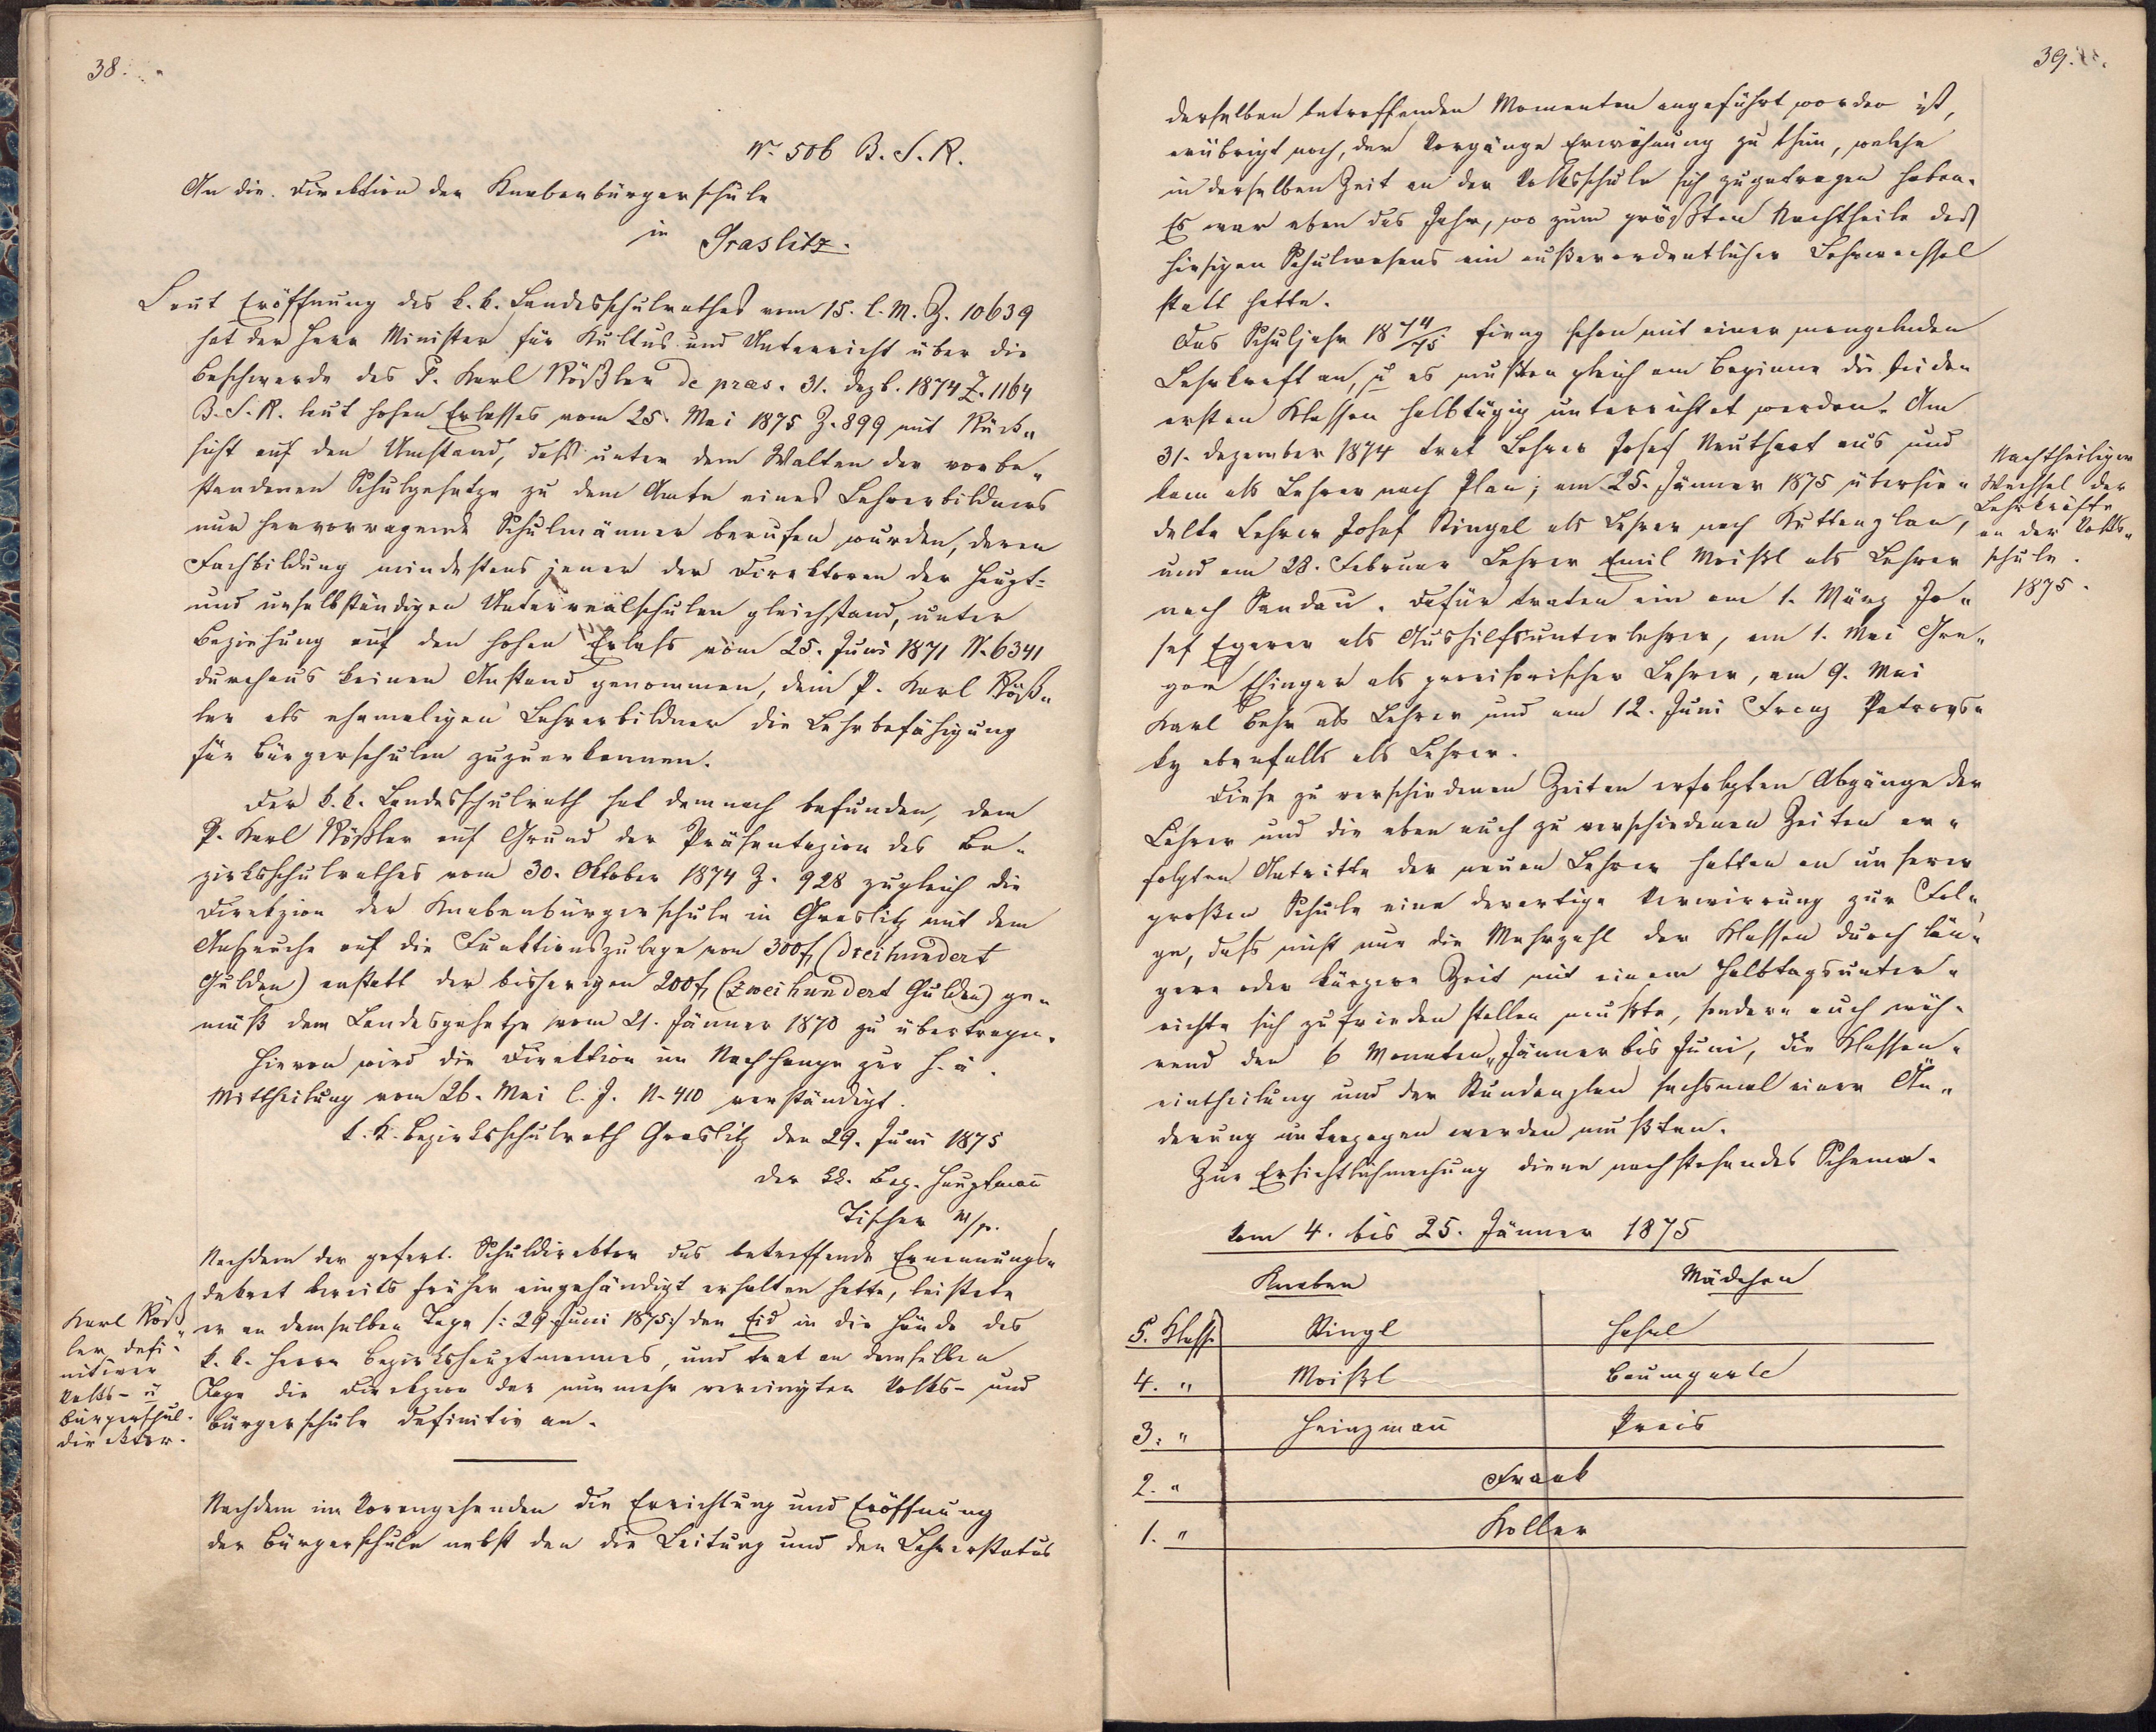 38.
Nr. 506 B. S. R.
An die Direktion der Knabenbürgerschule
in Graslitz.
Laut Eröffnung des k. k. Landesschulrathes vom 15. l. M. Z. 10639
hat der Herr Minister für Kultus und Unterricht über die
Beschwerde des P. Karl Rößler de praes. 31. Dezb. 1874 Z. 1164
B. S. R. laut hohen Erlasses vom 25. Mai 1875 Z. 899 mit Rück„
sicht auf den Umstand, daß unter dem Walten der vorbe„
standenen Schulgesetze zu dem Amte eines Lehrerbildners
nur hervorragende Schulmänner berufen wurden, deren
Fachbildung mindestens jener der Direktoren der Haupt-
und unselbständigen Unterrealschulen gleichstand, unter
Beziehung auf den hohen Erlaß vom 25. Juni 1871 N. 6341
durchaus keinen Anstand genommen, dem P. Karl Röß„
ler als ehemaligen Lehrerbildner die Lehrbefähigung
für Bürgerschulen zuzuerkennen.
Der k. k. Landesschulrath hat demnach befunden, dem
P. Karl Rößler auf Grund der Präsentazion des Be-
zirksschulrathes vom 30. Oktober 1874 Z. 928 zugleich die
Direkzion der Knabenbürgerschule in Graslitz mit dem
Anspruche auf die Funktionszulage von 300 f, (Dreihundert
Gulden) anstatt der bisherigen 200 f, (zweihundert Gulden) ge„
mäß dem Landesgesetze vom 21. Jänner 1870 zu übertragen.
Hievon wird die Direktion im Nachhange zur h. ä.
Mittheilung vom 26. Mai l. J. N. 410 verständigt.
k. k. Bezirksschulrath Graslitz den 29. Juni 1875
Der kk. Bez. Hauptmann
Tischer m/p.
Nachdem der gefert. Schuldirektor das betreffende Ernennungs„
dekret bereits früher eingehändigt erhalten hatte, leistete
er an demselben Tage /: 29. Juni 1875 :/ den Eid in die Hände des
k. k. Herrn Bezirkshauptmannes, und trat an demselben
Tage die Direkzion der nunmehr vereinigten Volks- und
Bürgerschule definitiv an.
Karl Röß„
ler defi-
nitiver
Volks- u
Bürgerschul-
direktor.
Nachdem im Vorangehenden die Errichtung und Eröffnung
der Bürgerschule nebst den die Leitung und den Lehrerstatus
39.
derselben betreffenden Momenten angeführt worden ist,
erübrigt noch, der Vorgänge Erwähnung zu thun, welche
in derselben Zeit an der Volksschule sich zugetragen haben.
Es war eben das Jahr, wo zum größten Nachtheile des
hiesigen Schulwesens ein außerordentlicher Lehrwechsel
statt hatte.
Das Schuljahr 1874/75 fieng schon mit einer mangelnden
Lehrkraft an, u es mußten gleich am Beginne die beiden
ersten Klassen halbtägig unterrichtet werden. Am
31. Dezember 1874 trat Lehrer Josef Neuthart aus und
kam als Lehrer nach Plan; am 25. Jänner 1875 übersie„
delte Lehrer Josef Ringel als Lehrer nach Kuttenplan,
und am 28. Februar Lehrer Emil Meißl als Lehrer
nach Sandau. Dafür traten ein am 1. März Jo„
sef Egerer als Aushilfsunterlehrer, am 1. Mai Gre„
gor Ehinger als provisorischer Lehrer, am 9. Mai
Karl Behr als Lehrer und am 12. Juni Franz Petrovs„
ky ebenfalls als Lehrer.
Nachtheiliger
Wechsel der
Lehrkräfte
an der Volks„
schule.
1875.
Diese zu verschiedenen Zeiten erfolgten Abgänge der
Lehrer und die eben auch zu verschiedenen Zeiten er„
folgten Antritte der neuen Lehrer hatten an unserer
großen Schule eine derartige Verwirrung zur Fol„
ge, daß nicht nur die Mehrzahl der Klassen durch län„
gere oder kürzere Zeit mit einem Halbtagsunter„
richte sich zufrieden stellen mußte, sondern auch wäh-
rend den 6 Monaten, Jänner bis Juni, die Klassen-
eintheilung und der Stundenplan sechsmal einer Än„
derung unterzogen werden mußten.
Zur Ersichtlichmachung diene nachstehendes Schema.
Vom 4. bis 25. Jänner 1875
Knaben Mädchen
5. Klasse Ringl Hahel
4. „ Meißl Baumgartl
3. „ Heinzmann Preis
2. „ Frank
1. „ Koller